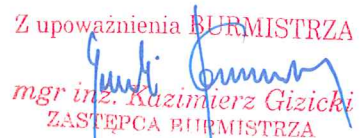 Z upoważnienia BURMISTRZA
mgr inż. Kazimierz Gizicki
ZASTĘPCA BURMISTRZA